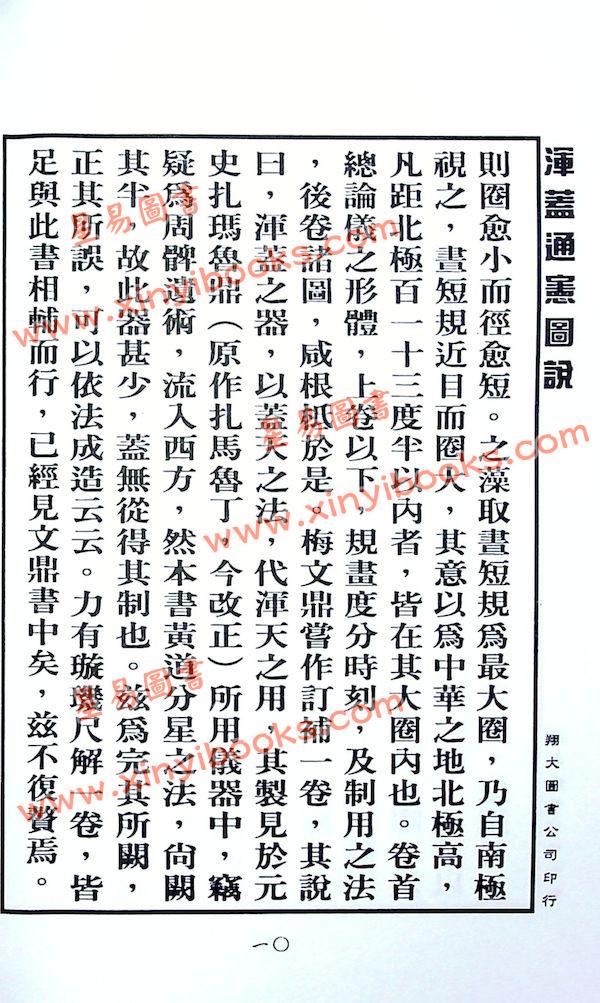 渾蓋通憲圖說
則圈愈小而徑愈短。之藻取晝短規為最大圈，乃自南極
視之，晝短規近目而圈大，其意以為中華之地北極高，
凡距北極百一十三度半以內者，皆在其大圈內也。卷首
總論儀之形體，上卷以下，規畫度分時刻，及制用之法
，後卷諸圖，咸根柢於是。梅文鼎嘗作訂補一卷，其說
曰，渾蓋之器，以蓋天之法，代渾天之用，其製見於元
史扎瑪魯鼎（原作扎馬魯丁，今改正）所用儀器中，竊
疑為周髀遺術，流入西方，然本書黃道分星之法，尙闕
其半，故此器甚少，蓋無從得其制也。茲為完其所闕，
正其所誤，可以依法成造云云。力有璇璣尺解一卷，皆
足與此書相輔而行，已經見文鼎書中矣，茲不復贅焉。
翔大圖書公司印行
一〇
星易圖書
www.xinyibooks.com
星易圖書
www.xinyibooks.com
星易圖書
www.xinyibooks.com